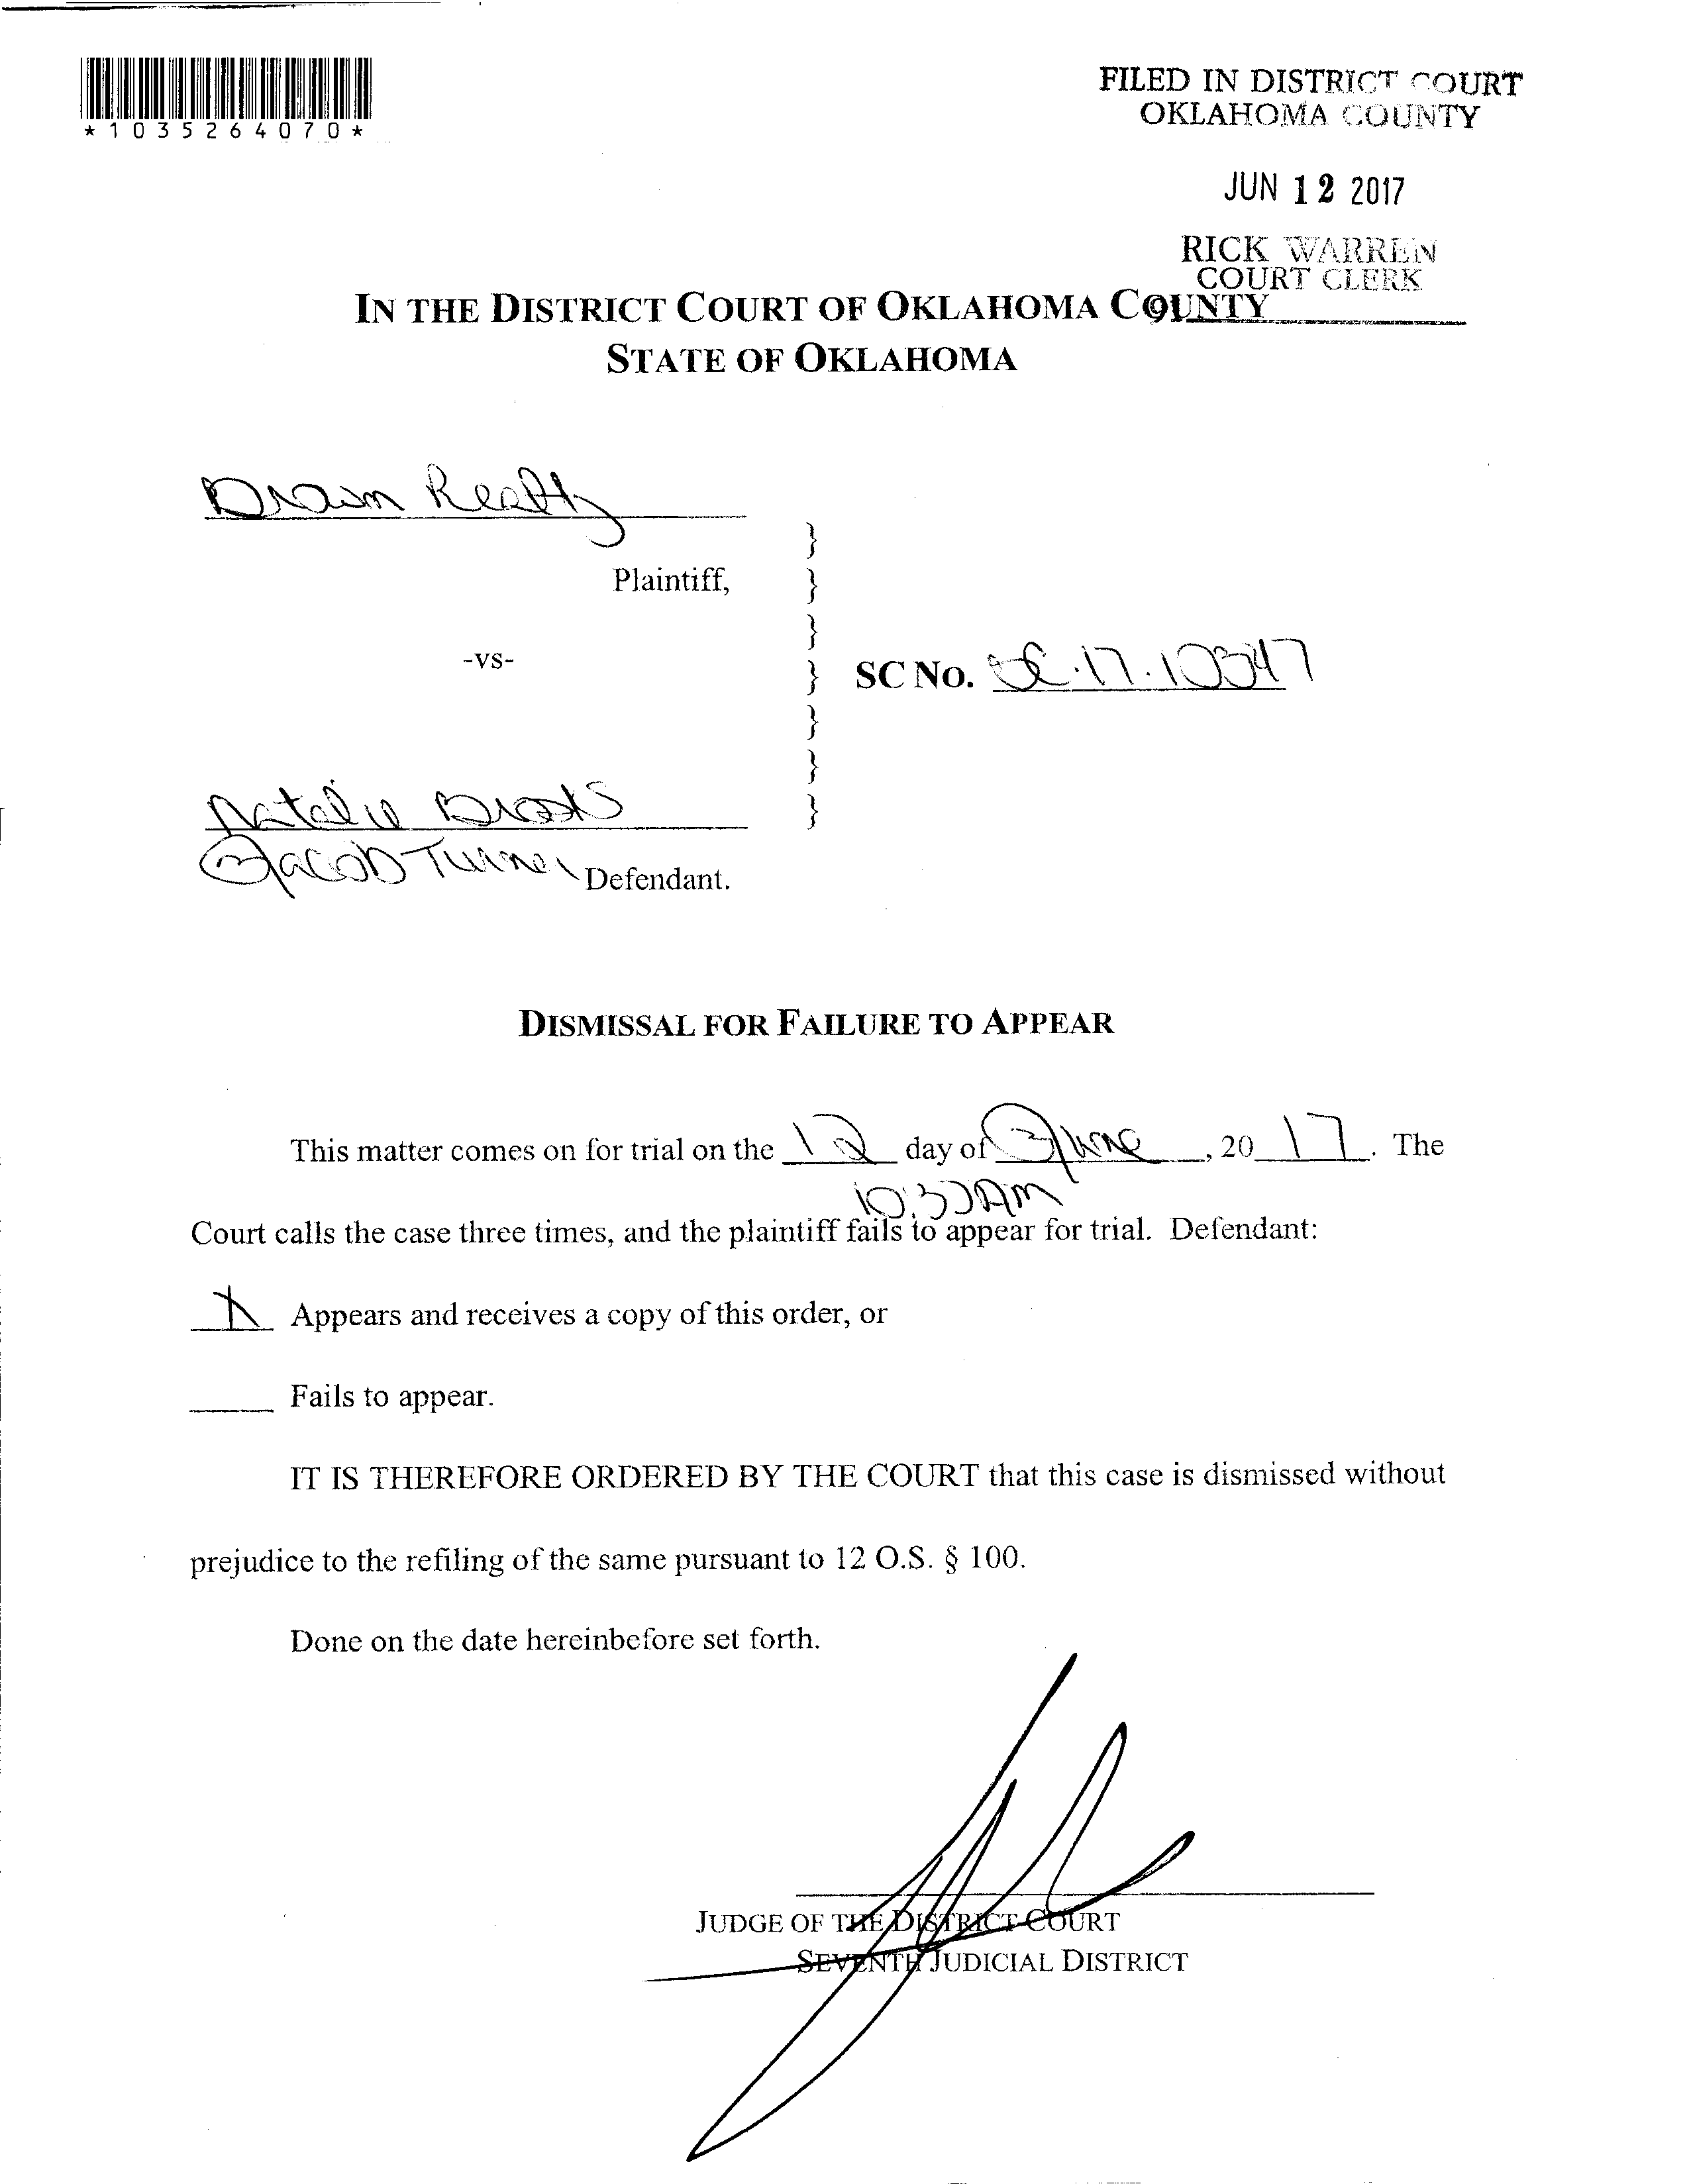 *1035264070*
FILED IN DISTRICT COURT
OKLAHOMA COUNTY
JUN 12 2017
RICK WARREN
COURT CLERK
IN THE DISTRICT COURT OF OKLAHOMA COUNTY
STATE OF OKLAHOMA
Realty
Plaintiff,
-vs-
SC NO. SC.17.10347
Natalie Brooks
Jacob Turner Defendant.
DISMISSAL FOR FAILURE TO APPEAR
This matter comes on for trial on the 12 day of June, 2017. The
10:30 AM
Court calls the case three times, and the plaintiff fails to appear for trial. Defendant:
X Appears and receives a copy of this order, or
Fails to appear.
IT IS THEREFORE ORDERED BY THE COURT that this case is dismissed without
prejudice to the refiling of the same pursuant to 12 O.S. § 100.
Done on the date hereinbefore set forth.
JUDGE OF THE DISTRICT COURT
SEVENTH JUDICIAL DISTRICT